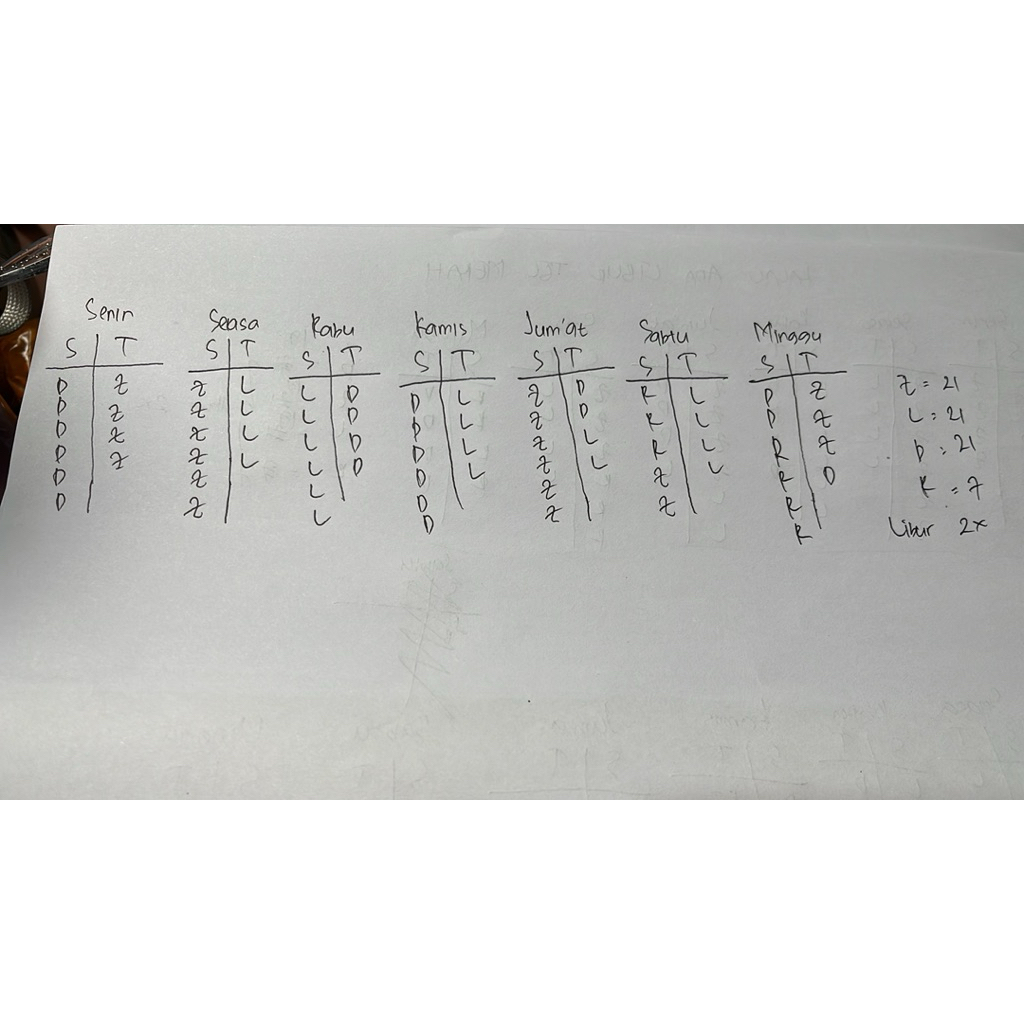 Senin Seasa Rabu Kamis Jum'at Sabtu Minggu
S T S T S T S T S T S T S T
D Z Z L L D D L Z D R L D Z Z = 21
D Z Z L L D D L Z D R L D Z L = 21
D Z Z L L D D L Z L R L R Z D = 21
D Z Z L L D D L Z L Z L R D R = 7
D Z L D Z Z R Libur 2x
D Z L D Z R